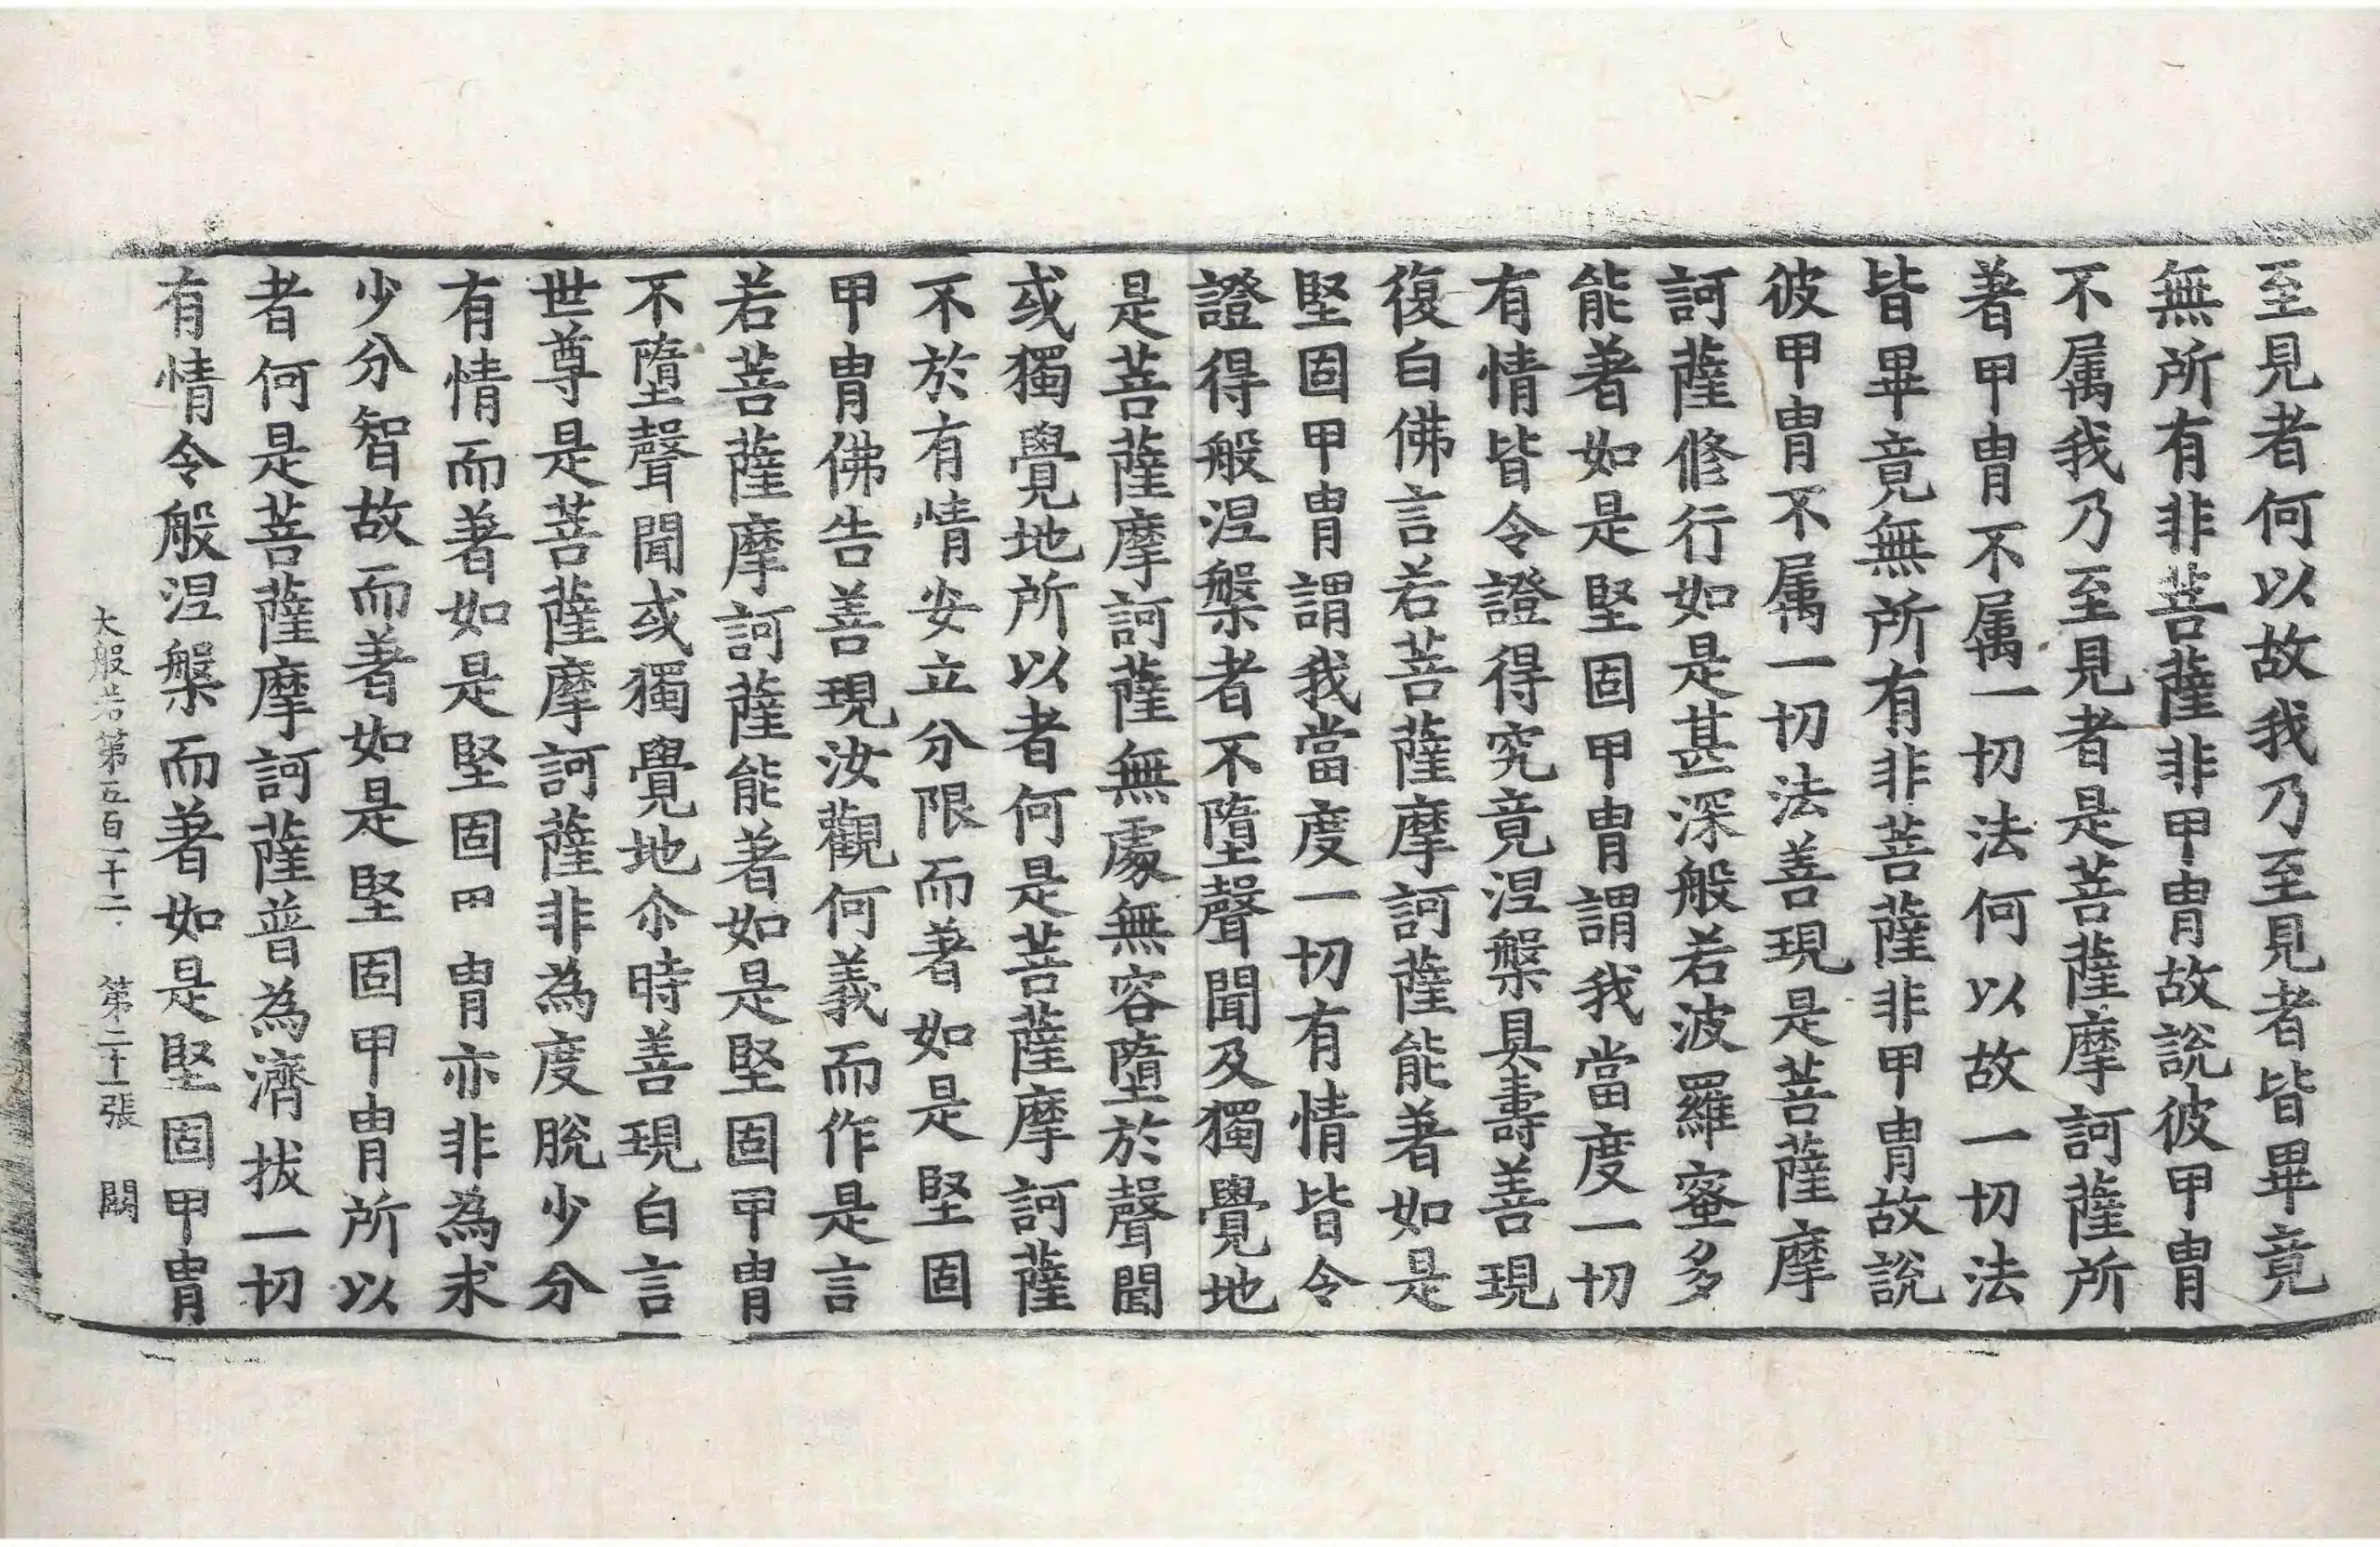 至見者何以故我乃至見者皆畢竟
無所有非菩薩非甲冑故說彼甲冑
不属我乃至見者是菩薩摩訶薩所
著甲冑不属一切法何以故一切法
皆畢竟無所有非菩薩非甲冑故說
彼甲冑不属一切法善現是菩薩摩
訶薩修行如是甚深般若波羅蜜多
能著如是堅固甲冑謂我當度一切
有情皆令證得究竟涅槃具壽善現
復白佛言若菩薩摩訶薩能著如是
堅固甲冑謂我當度一切有情皆令
證得般涅槃者不墮聲聞及獨覺地
是菩薩摩訶薩無處無容墮於聲聞
或獨覺地所以者何是菩薩摩訶薩
不於有情安立分限而著如是堅固
甲冑佛告善現汝觀何義而作是言
若菩薩摩訶薩能著如是堅固甲冑
不墮聲聞或獨覺地尒時善現白言
世尊是菩薩摩訶薩非為度脫少分
有情而著如是堅固甲冑亦非為求
少分智故而著如是堅固甲冑所以
者何是菩薩摩訶薩普為濟拔一切
有情令般涅槃而著如是堅固甲冑
大般若第五百二十二 第二十一張